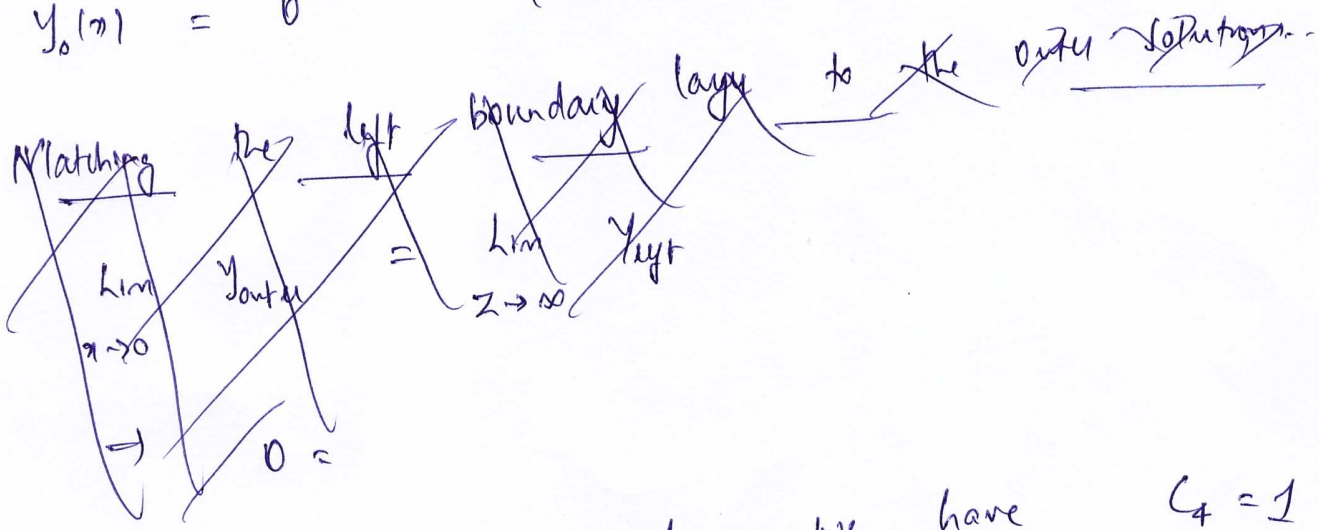 y₀(x) = 0
Matching the left boundary layer to the outer solutions...
Lim x→0 Youter = Lim z→∞ Yleft
⇒ 0 =
have C₄ = 1